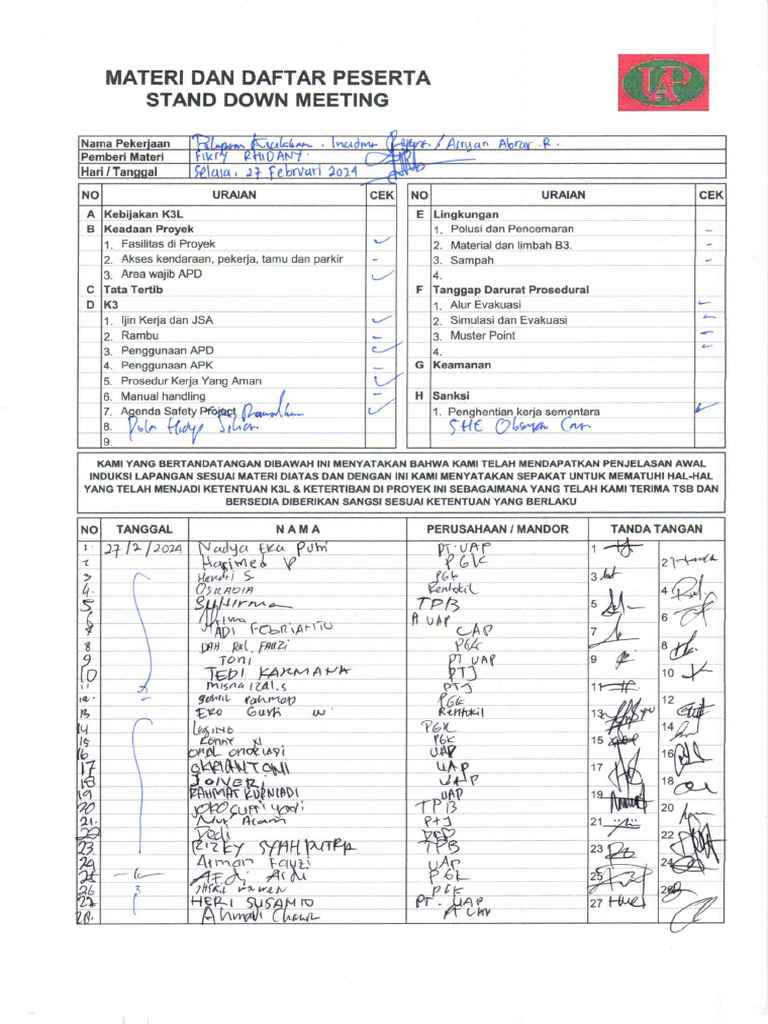 MATERI DAN DAFTAR PESERTA
STAND DOWN MEETING
UAP
Nama Pekerjaan / Arryan Abrar. R.
Pemberi Materi FIKRY RHIDANY.
Hari / Tanggal Selasa, 27 Februari 2024
NO URAIAN CEK
A Kebijakan K3L
B Keadaan Proyek
1. Fasilitas di Proyek ✓
2. Akses kendaraan, pekerja, tamu dan parkir -
3. Area wajib APD ✓
C Tata Tertib
D K3
1. Ijin Kerja dan JSA ✓
2. Rambu -
3. Penggunaan APD ✓
4. Penggunaan APK -
5. Prosedur Kerja Yang Aman ✓
6. Manual handling -
7. Agenda Safety Project ✓
8. Pola Hidup
9.
NO URAIAN CEK
E Lingkungan
1. Polusi dan Pencemaran -
2. Material dan limbah B3. -
3. Sampah -
4.
F Tanggap Darurat Prosedural
1. Alur Evakuasi
2. Simulasi dan Evakuasi
3. Muster Point
4.
G Keamanan
H Sanksi
1. Penghentian kerja sementara ✓
SHE
KAMI YANG BERTANDATANGAN DIBAWAH INI MENYATAKAN BAHWA KAMI TELAH MENDAPATKAN PENJELASAN AWAL
INDUKSI LAPANGAN SESUAI MATERI DIATAS DAN DENGAN INI KAMI MENYATAKAN SEPAKAT UNTUK MEMATUHI HAL-HAL
YANG TELAH MENJADI KETENTUAN K3L & KETERTIBAN DI PROYEK INI SEBAGAIMANA YANG TELAH KAMI TERIMA TSB DAN
BERSEDIA DIBERIKAN SANGSI SESUAI KETENTUAN YANG BERLAKU
NO TANGGAL N A M A PERUSAHAAN / MANDOR TANDA TANGAN
1. 27/2/2024 Nadya Eka Putri PT. UAP 1
2 PGK 2
3 Hendri S PGK 3
4. OSRADIA Rentokil 4
5 SUHIRMA TPB 5
6 UAP 6
7 ADI FEBRIANTO UAP 7
8 FAUZI PGK 8
9 TONI PT UAP 9
10 TEDI KARMANA PTJ 10
11 misna izal.s PTJ 11
12 rahman PGK 12
13 EKO Rentokil 13
14 Legino PGK 14
15 Ronny N PGK 15
16 UAP 16
17 OKRIANTONI UAP 17
18 JONERI UAP 18
19 RAHMAT KURNIADI UAP 19
20 JOKO TPB 20
21. PTJ 21
22 Dedi 22
23. RIZKY SYAHPUTRA TPB 23
24 Arman Fauzi UAP 24
25 Ardi PGK 25
26 PGK 26
27 HERI SUSANTO PT. UAP 27
28. Ahmadi UAP